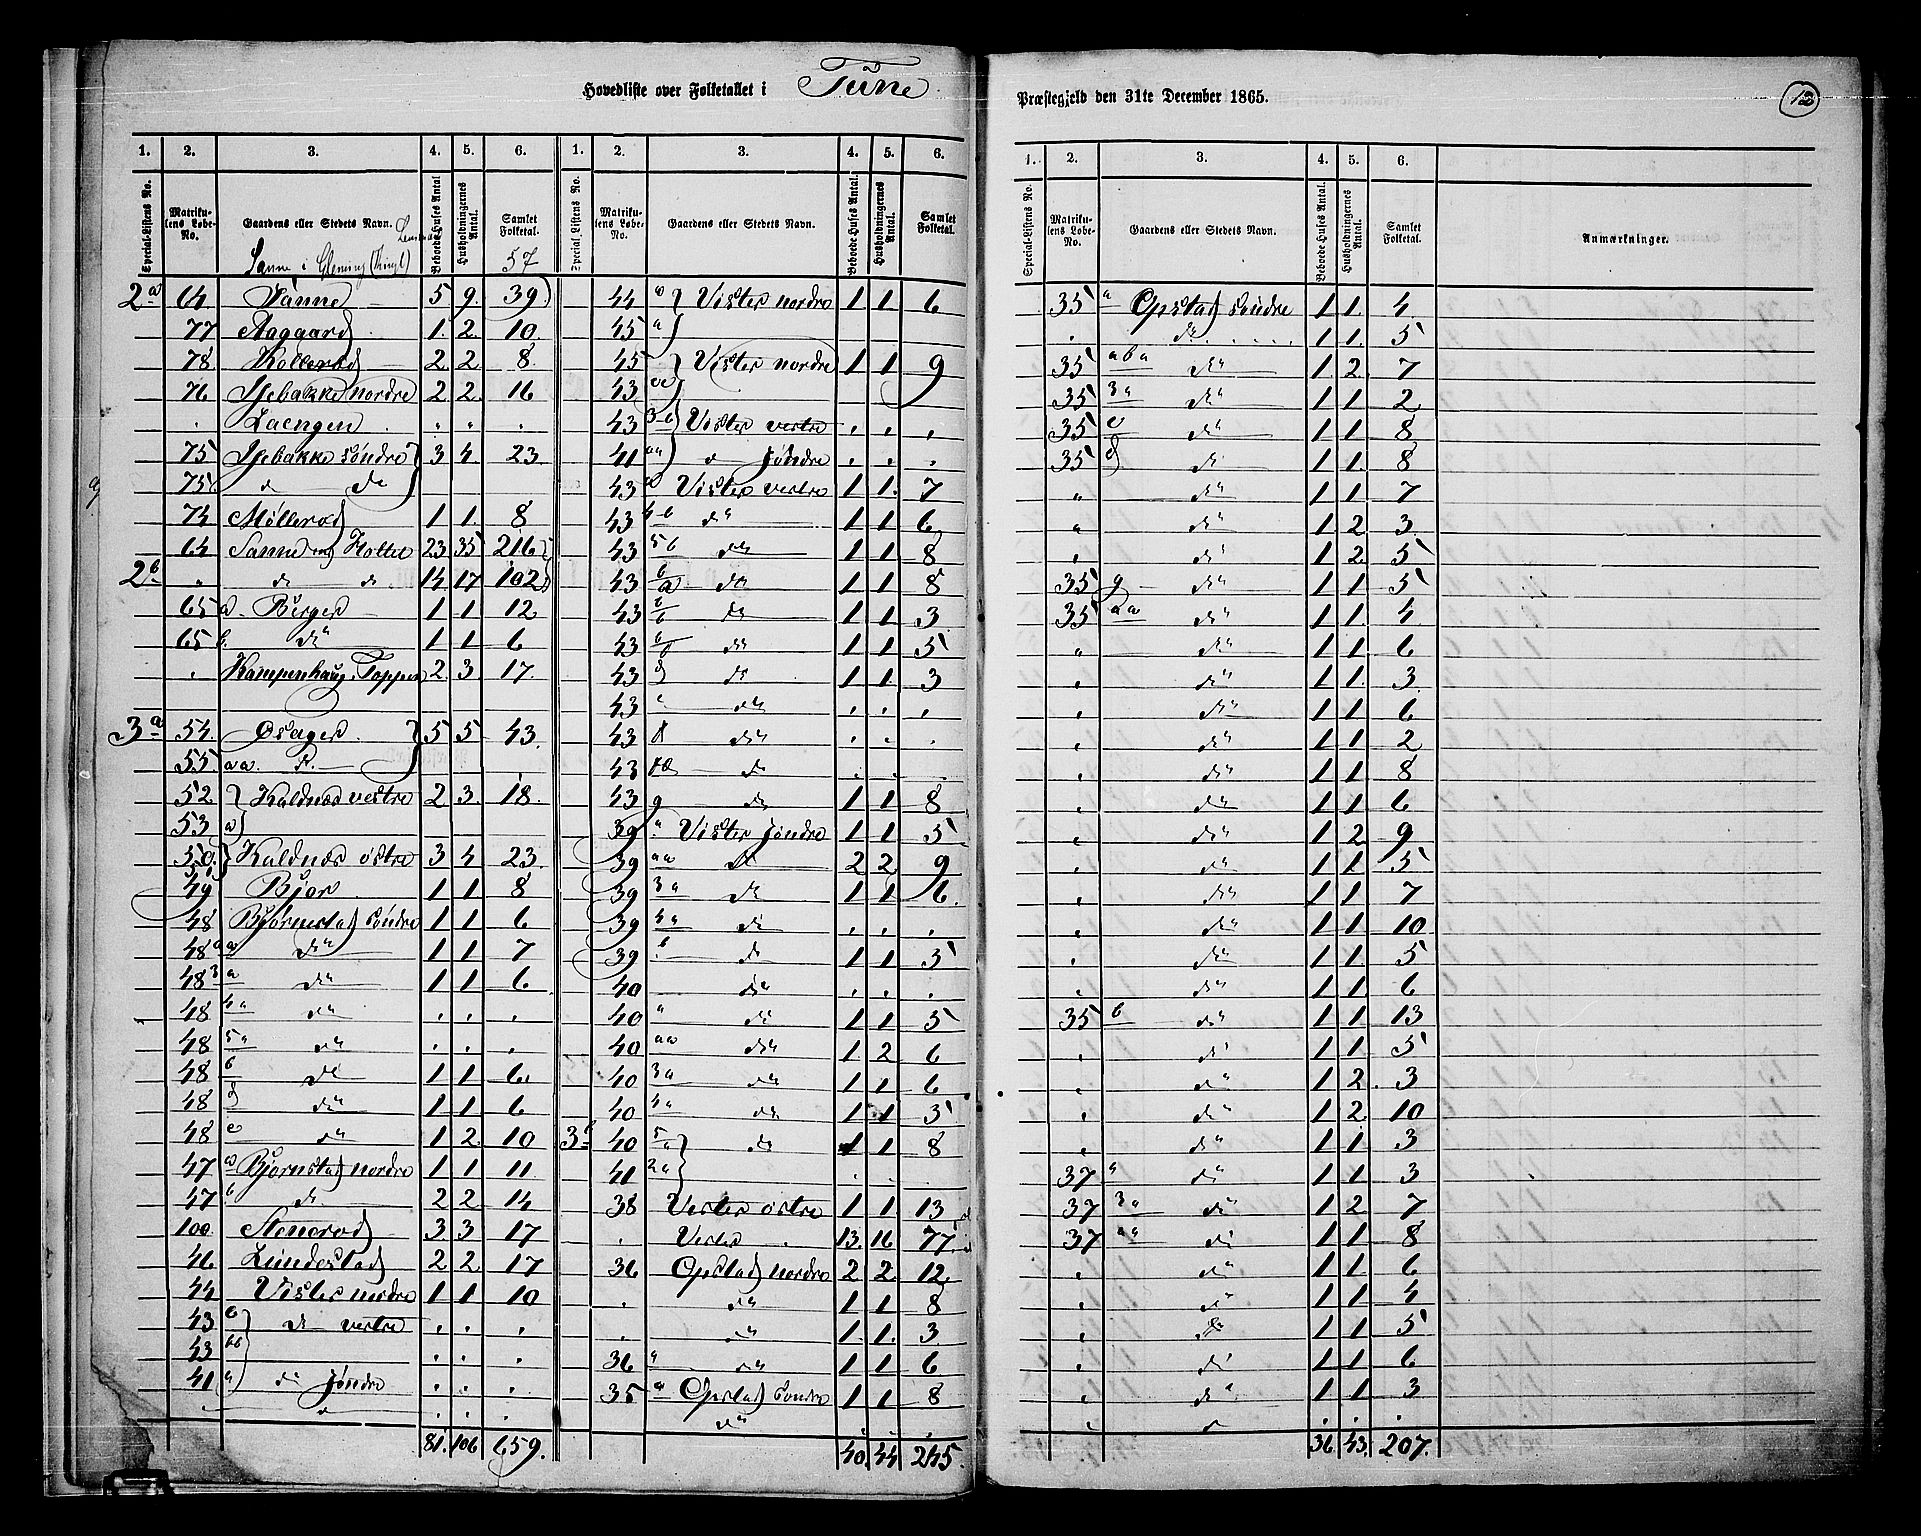 Hovedliste over Folketallet i Tune
1. 2. 3. 4. 5. 6. 1. 2. 3. 4. 5. 6.
Special-Listens No. Matrikulens Løbe-No. Gaardens eller Stedets Navn. Beboede Huses Antal Husholdningernes Antal. Samlet Folketal. Special-Listens No. Matrikulens Løbe-No. Gaardens eller Stedets Navn. Beboede Huses Antal. Husholdningernes Antal. Samlet Folketal.
Sanne i 57
2a 64 Sanne 5 9. 39
77 Aagaard 1. 2. 10
78. Kollerød 2 2 8.
76 Isebakke nordre 2 2. 16
. Laengen . „ .
75 Isebakke søndre 3 4. 23
75 d d
74 Møllerød 1 1. 8
64 Sanne og Holtet 23 35 216
2b „ d d 14 17 102
65 a Berger 1 1 12
65 b. do 1 1 6
. Kampenhaug, Toppen 2 3. 17.
3a 54. Øsager 5 5 43
55 aa. d.
52 Kaldnæs vestre 2 3. 18.
53 a
50. Kaldnæs østre 3 4 23
49 Bjør 1 1 8
48 Bjørnestad søndre 1 1 6
48 aa do 1 1 7
48 3a do 1 1 6
48 4a do . . .
48 5a do . . .
48 b do 1 1 6.
48 d do 1 1 6
48 e do 1 2. 10
47 a Bjørnstad nordre 1 1 11
47 b do 2 2 14
100. Stenerød 3 3 17
46 Lundestad 2 2. 17
44 Vister nordre 1 1 10
43 b do vestre . . .
43 bb . . .
41 a do søndre . . .
81. 106 659.
44 a Vister nordre 1 1. 6
45 a
45 Vister nordre 1 1 9
43
43 3b Vister vestre . . .
41 aa d søndre . . .
43 a Vister vestre 1 1. 7
43 4b do 1 1 6
43 5b do 1 1 8
43 do 1 1 8
43 do 1 1 3
43 do 1 1 5
43 d do 1 1 3
43 e do . . .
43 f do . . .
43 d . . .
43 g do 1 1 8
39 a Vister søndre 1 1 5
39 aa do 2 2 9
39 3a do 1 1 6.
39 4a do . . .
39 b d 1 1 5
40 do . . .
40 a do 1 1 5
40 aa do 1. 2 6
40 3a do 1 1 6
40 4a do 1 1 5
3b 40 5a do 1 1 8
41 2a
38 Vister østre 1 1. 13
. Vister 13. 16 77
36 Opstad nordre 2 2. 12.
. do 1 1 8
. do 1 1. 3
36 a do 1 1 6
35 a Opstad søndre 1 1 8
do
40. 44 245.
Præstegjeld den 31te December 1865.
12
1. 2. 3. 4. 5. 6.
Special-Listens No. Matrikulens Løbe-No. Gaardens eller Stedets Navn. Beboede Huses Antal. Husholdningernes Antal. Samlet Folketal. Anmærkninger.
35 a Opstad søndre 1 1. 4
. do 1 1. 5
35 aba do 1. 2. 7
35 3a do 1 1 2
35 c do 1 1 8
35 d do 1 1. 8
„ do 1 1 7
„ do 1 2 3.
. do 1 2. 5
35 g do 1 1 5
35 aa do 1 1 4
„ do 1 1 6
. do 1 1. 3
. do 1 1 6
. do 1 1 2
. do 1 1 8
. do 1 1 6
. do 1 2 9
. do 1 1. 5
. do 1 1 7
. do 1 1 10
. do 1 1. 5
. do 1 1 6
35 b do 1 1 13
. do 1 1. 5
. do 1 2. 3
. do 1 2. 10
. do 1 1. 3
37 a do 1 1 3
37 3a do 1 2 7
37 aa do 1 1 8
. do 1 1. 6
. do 1 1. 4
. do 1 1. 5
. do 1 1. 6
. do 1 1 3
. d . . .
36 43. 207.